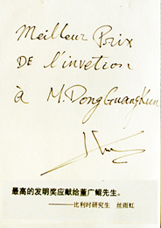 Meilleur Prix
DE l'invetion
à M. Dong Guang Kun
最高的发明奖应献给董广鲲先生。
——比利时研究生 丝雨虹